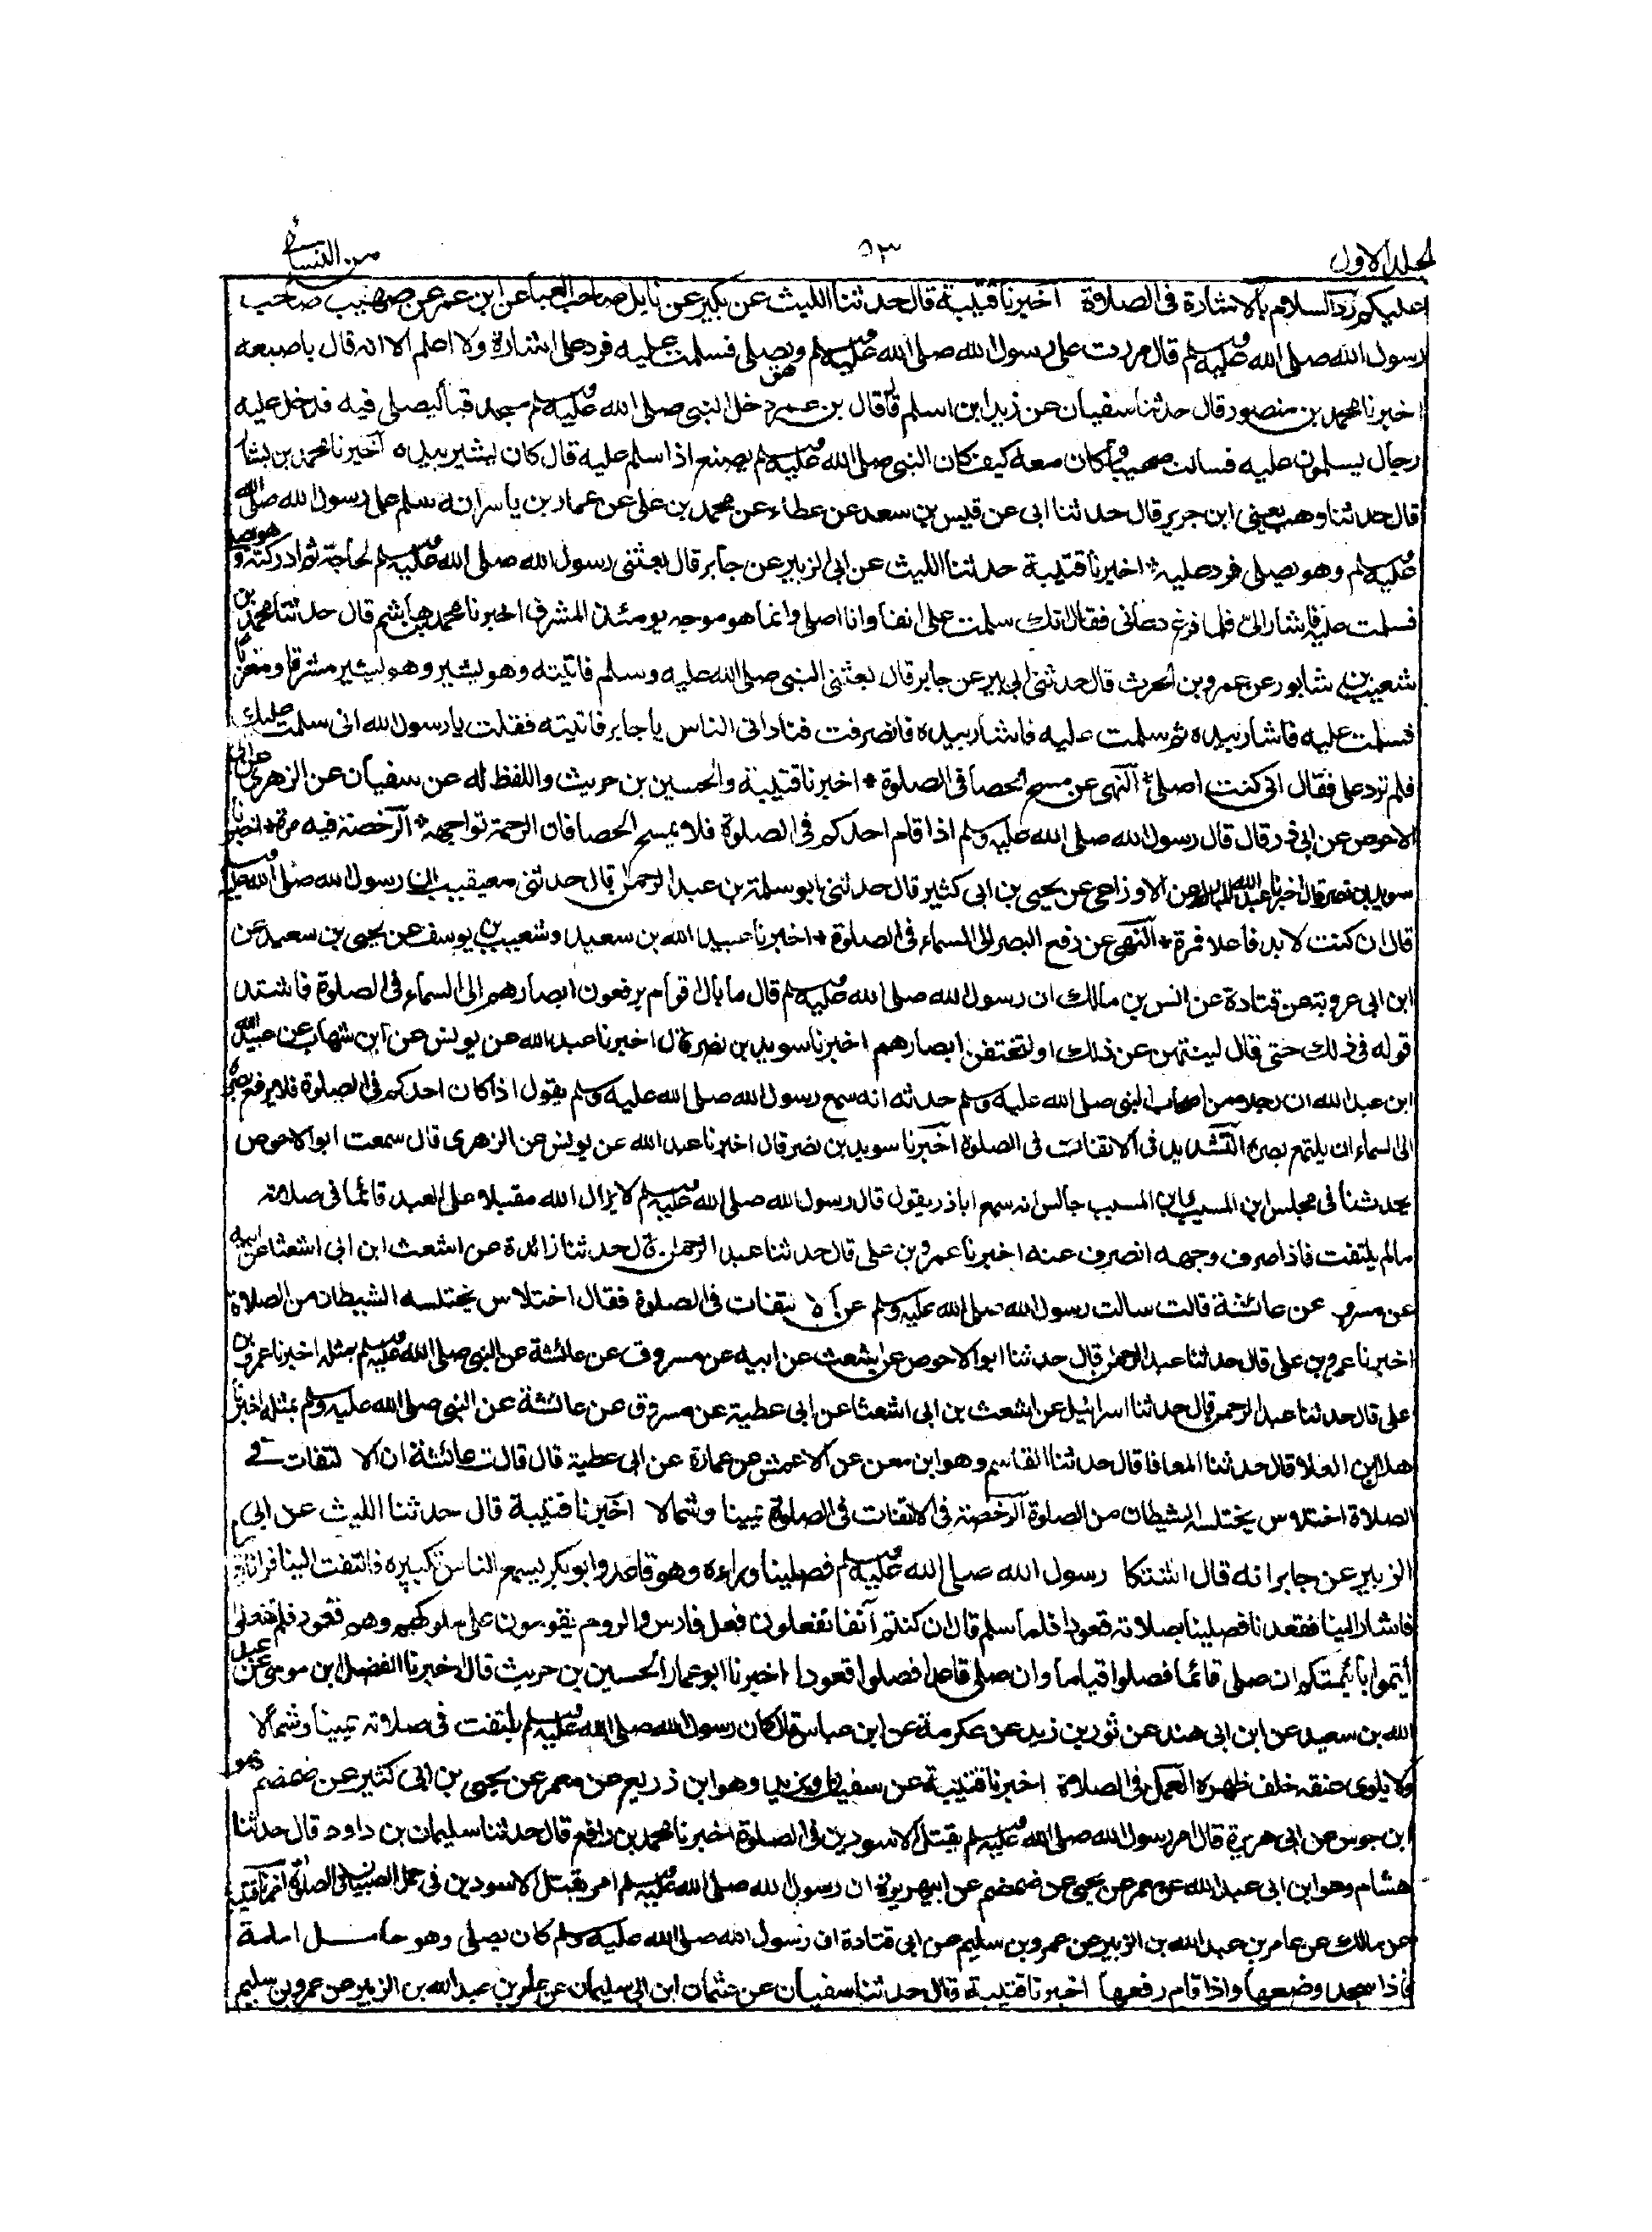 الجلد الاول ٥٣ من النسائي
عليكم رد السلام بالاشارة فى الصلاوة اخبرنا قتيبة قال حدثنا الليث عن بكير عن نايل صاحب العبا عن ابن عمر عن صهيب صاحب
رسول الله صلى الله عليه وسلم قال مررت على رسول الله صلى الله عليه وسلم وهو يصلى فسلمت عليه فرد على اشارة ولا اعلم الا انه قال باصبعه
اخبرنا محمد بن منصور قال حدثنا سفيان عن زيد ابن اسلم قال قال بن عمر دخل النبى صلى الله عليه وسلم مسجد قبا ليصلى فيه فدخل عليه
رجال يسلمون عليه فسالت صهيبا وكان معه كيف كان النبى صلى الله عليه وسلم يصنع اذا سلم عليه قال كان يشير بيده اخبرنا محمد بن بشار
قال حدثنا وهب يعنى ابن جرير قال حدثنا ابى عن قيس بن سعد عن عطاء عن محمد بن على عن عمار بن ياسر انه سلم على رسول الله صلى الله
عليه وسلم وهو يصلى فرد عليه * اخبرنا قتيبة حدثنا الليث عن ابى الزبير عن جابر قال بعثنى رسول الله صلى الله عليه وسلم لحاجة ثم ادركته وهو يصلى
فسلمت عليه فاشار الى فلما فرغ دعانى فقال انك سلمت على انفا وانا اصلى وانما هو موجه يومئذ المشرق اخبرنا محمد بن هاشم قال حدثنا محمد بن
شعيب بن شابور عن عمرو بن الحرث قال حدثنى ابى الزبير عن جابر قال بعثنى النبى صلى الله عليه وسلم فاتيته وهو يشير وهو يشير مشرقا ومغربا
فسلمت عليه فاشار بيده ثم سلمت عليه فاشار بيده فانصرفت فنادانى الناس يا جابر فاتيته فقلت يا رسول الله انى سلمت عليك
فلم ترد على فقال انى كنت اصلى * النهى عن مسح الحصا فى الصلوة * اخبرنا قتيبة والحسين بن حريث واللفظ له عن سفيان عن الزهرى عن ابى
الاحوص عن ابى ذر قال قال رسول الله صلى الله عليه وسلم اذا قام احدكم فى الصلوة فلا يمسح الحصا فان الرحمة تواجهه * الرخصة فيه مرة * اخبرنا
سويد بن نصر قال اخبرنا عبد الله المبارك عن الاوزاعى عن يحيى بن ابى كثير قال حدثنى ابو سلمة بن عبد الرحمن قال حدثنى معيقيب ان رسول الله صلى الله عليه وسلم
قال ان كنت لا بد فاعلا فمرة * النهى عن رفع البصر الى السماء فى الصلوة * اخبرنا عبيد الله بن سعيد وشعيب بن يوسف عن يحيى بن سعيد عن
ابن ابى عروبة عن قتادة عن انس بن مالك ان رسول الله صلى الله عليه وسلم قال ما بال اقوام يرفعون ابصارهم الى السماء فى الصلوة فاشتد
قوله فى ذلك حتى قال لينتهن عن ذلك او لتختفن ابصارهم اخبرنا سويد بن نصر قال اخبرنا عبد الله عن يونس عن ابن شهاب عن عبيد الله
ابن عبد الله ان رجلا من اصحاب النبى صلى الله عليه وسلم حدثه انه سمع رسول الله صلى الله عليه وسلم يقول اذا كان احدكم فى الصلوة فلا يرفع بصره
الى السماء ان يلتمع بصره التشديد فى الالتفات فى الصلوة اخبرنا سويد بن نصر قال اخبرنا عبد الله عن يونس عن الزهرى قال سمعت ابو الاحوص
يحدثنا فى مجلس ابن المسيب وابن المسيب جالس انه سمع اباذر يقول قال رسول الله صلى الله عليه وسلم لا يزال الله مقبلا على العبد قائما فى صلاته
مالم يلتفت فاذا صرف وجهه انصرف عنه اخبرنا عمرو بن على قال حدثنا عبد الرحمان قال حدثنا زائدة عن اشعث ابن ابى اشعثا عن ابيه
عن مسروق عن عائشة قالت سالت رسول الله صلى الله عليه وسلم عن الا لتفات فى الصلوة فقال اختلاس يختلسه الشيطان من الصلاة
اخبرنا عمرو بن على قال حدثنا عبد الرحمن قال حدثنا ابو الاحوص عن اشعث عن ابيه عن مسروق عن عائشة عن النبى صلى الله عليه وسلم بمثله اخبرنا عمرو بن
على قال حدثنا عبد الرحمن قال حدثنا اسرائيل عن اشعث بن ابى اشعثا عن ابى عطية عن مسروق عن عائشة عن النبى صلى الله عليه وسلم بمثله اخبرنا
هلال بن العلا قال حدثنا المعافا قال حدثنا القاسم وهو ابن معن عن الاعمش عن عمارة عن ابى عطية قال قالت عائشة ان الا لتفات فى
الصلاة اختلاس يختلسه الشيطان من الصلوة الرخصة فى الالتفات فى الصلوة يمينا وشمالا اخبرنا قتيبة قال حدثنا الليث عن ابى
الزبير عن جابر انه قال اشتكا رسول الله صلى الله عليه وسلم فصلينا وراءه وهو قاعد وابو بكر يسمع الناس تكبيره فالتفت الينا فرانا قياما
فاشار الينا فقعدنا فصلينا بصلاته قعودا فلما سلم قال ان كنتم آنفا تفعلون فعل فارس والروم يقومون على ملوكهم وهم قعود فلا تفعلوا
أيتموا بأيمتكم ان صلى قائما فصلوا قياما وان صلى قاعدا فصلوا قعودا اخبرنا ابو عمار الحسين بن حريث قال اخبرنا الفضل ابن موسى عن عبد
الله بن سعيد عن ابن ابى هند عن ثور بن زيد عن عكرمة عن ابن عباس قال كان رسول الله صلى الله عليه وسلم يلتفت فى صلاته يمينا وشمالا
ولا يلوى عنقه خلف ظهره العمل فى الصلاة اخبرنا قتيبة عن سفيان ويزيد وهو ابن زريع عن معمر عن يحيى بن ابى كثير عن ضمضم هو
ابن جوس عن ابى هريرة قال امر رسول الله صلى الله عليه وسلم بقتل الاسودين فى الصلوة اخبرنا محمد بن رافع قال حدثنا سليمان بن داود قال حدثنا
هشام وهو ابن ابى عبد الله عن معمر عن يحيى عن ضمضم عن ابيهريرة ان رسول الله صلى الله عليه وسلم امر بقتل الاسودين فى حمل الصبيان فى الصلوة اخبرنا قتيبة
عن مالك عن عامر بن عبد الله بن الزبير عن عمرو بن سليم عن ابى قتادة ان رسول الله صلى الله عليه وسلم كان يصلى وهو حامل امامة
فاذا سجد وضعها واذا قام رفعها اخبرنا قتيبة قال حدثنا سفيان عن عثمان ابن ابى سليمان عن عامر بن عبد الله بن الزبير عن عمرو بن سليم